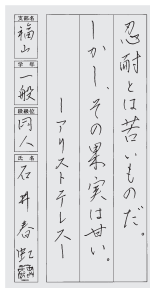 忍耐とは苦いものだ。
しかし、その果実は甘い。
ーアリストテレスー
支部名
福山
学年
一般
段級位
同人
氏名
石井春虹